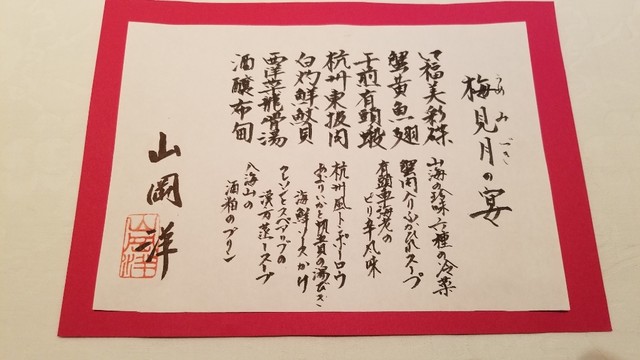 うめみづき
梅見月の宴
福美彩碟
蟹黄魚翅
干煎有頭蝦
杭州東坡肉
白灼鮮魷貝
西洋菜龍骨湯
酒醸布甸
山海の珍味 六種の冷菜
蟹肉入りふかひれスープ
有頭車海老の
ピリ辛風味
杭州風トンポーロウ
あおりいかと帆立貝の湯びき
海鮮ソースかけ
クレソンとスペアリブの
漢方蒸スープ
八海山の
酒粕のプリン
山岡洋